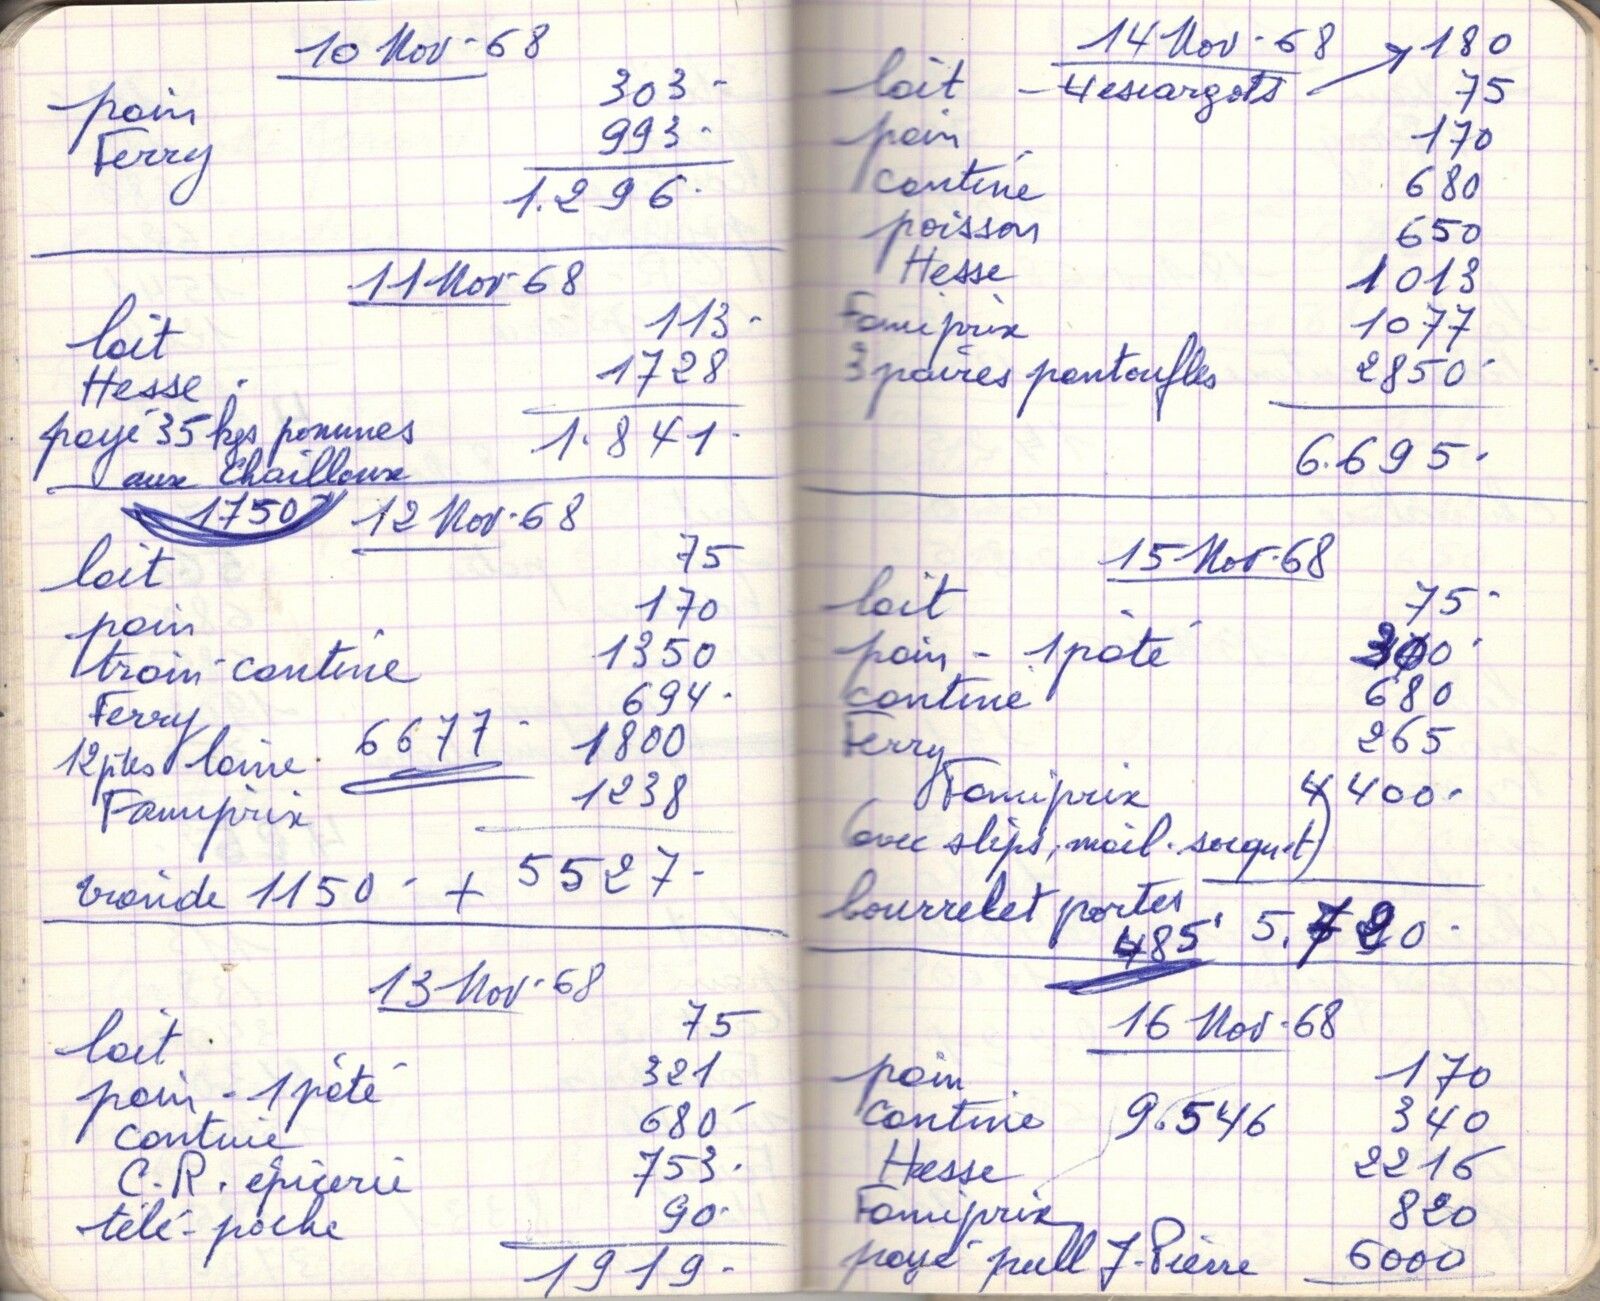 10 Nov. 68
pain 303.
Ferry 993.
1.296.
11 Nov. 68
lait 113.
Hesse. 1728
payé 35 kgs pommes 1.841.
aux Chailloux
1750 12 Nov. 68
lait 75
pain 170
train-cantine 1350
Ferry 694.
12 ptes laine 6677. 1800
Famiprix 1238
viande 1150 + 5527.
13 Nov. 68
lait 75
pain - 1 pâté 321
cantine 680
C.R. épicerie 753.
télé-poche 90.
1919.
14 Nov. 68 180
lait - 4 escargots 75
pain 170
cantine 680
poisson 650
Hesse 1013
Famiprix 1077
3 paires pantoufles 2850
6.695.
15 Nov. 68
lait 75
pain - 1 pâté
cantine 680
Ferry 265
Famiprix 4400.
(avec slips, mail.
bourrelet portes
485
16 Nov. 68
pain 170
cantine 9.546 340
Hesse 2216
Famiprix 820
payé pull J-Pierre 6000